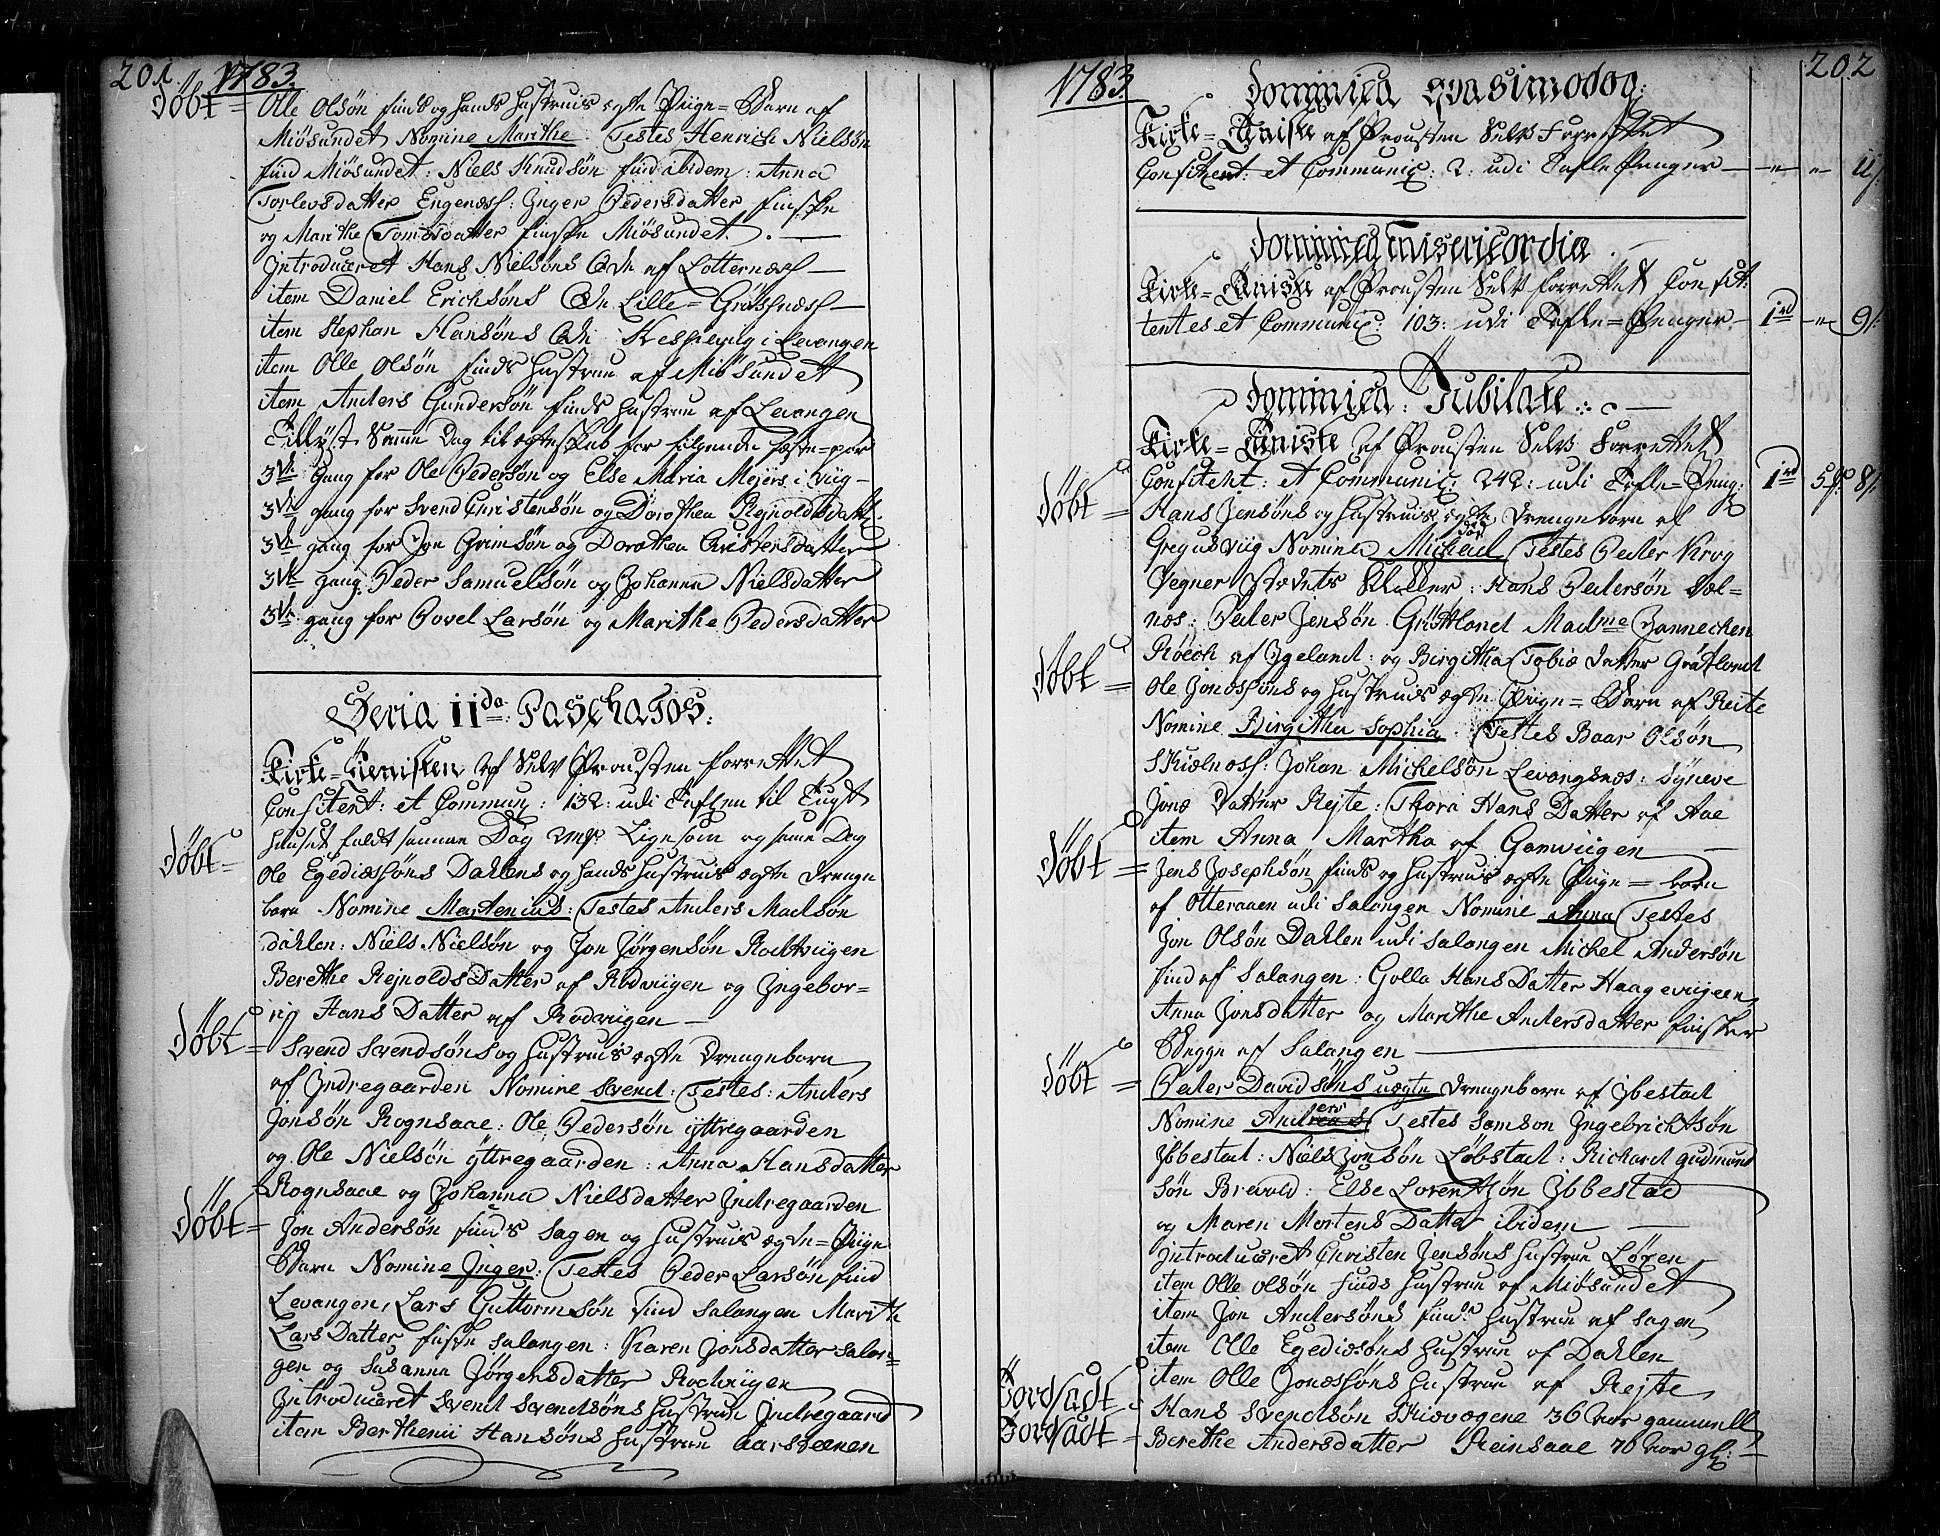 201 1783.
Døbt = Olle Olsøn finds og hands hustrues ægte Piige-Barn af
Miøsundet Nomine Marithe. Testes Henrich Nielsøn
find Miøsundet: Niels Knudsøn find ibidem: Anna
Torlevsdatter Engenæss: Inger Pedersdatter finske
og Marithe Tomædatter finske Miøsundet.
Introduceret Hans Nielsøns Qde af Lotternæss
item Daniel Erichsøns Qde Lille-Gräsnæss
item Stephan Hansøns Qde Hesseevig i Levangen
item Olle Olsøn finds hustrue af Miøsundet
item Anders Gundersøn finds hustrue af Levangen
Tillyst Samme Dag til ægteskab for følgende fæste-par
3die Gang for Ole Pedersøn og Else Maria Mejers i viig
3die gang for Svend Christensøn og Dorothea Rejnoldsdatt:
3die gang for Jon Grimsøn og Dorothea Christensdatter
3die gang: Peder Samuelsøn og Johanna Nielsdatter
3die gang for Povel Larsøn og Marithe Pedersdatter
Feria IIda Paschatos:
Kirke-Tienisten af Selv Prousten forrettet
Confitent: et Commun: 132: udi Taflen til Tugt
huuset faldt samme Dag 2 mk. Ligesom og same Dag
Døbt = Ole Egediæsøns Dahlens og hands hustrues ægte Drenge
barn Nomine Martenius: Testes Anders Madsøn
dahlen: Niels Nielsøn og Jon Jørgensøn Rodtviigen
Berethe Rejnolds Datter af Rødviigen og Ingebor-
rig Hans Datter af Rodviigen
Døbt = Svend Svendsøns og hustrues ægte Drengebarn
af Indregaarden Nomine Svend: Testes: Anders
Jonsøn Rognsaae: Ole Pedersøn yttregaarden
og Ole Nielsøn yttregaarden: Anna Hansdatter
Rognsaae og Johanna Nielsdatter Indregaarden
Døbt = Jon Andersøn finds Sagen og hustrues ægte-Piige
Barn Nomine Inger: Testes Peder Larsøn find
Levangen, Lars Guttormsøn find Salangen Marith
Lars Datter finske Salangen: Karen Jonsdatter Salan-
gen og Susanna Jørgensdatter Rodviigen
Introduceret Svend Svendsøns hustrue Indregaard
item Berthenii Hansøns hustrue Aarsteenen
1783. 202
Dominica Qvasimodog:
Kirke-Tieniste af Prousten Selv Forrettet
Confitent: et Communic: 2: udi Tafle Penger — " — " 11 s:
Dominica Misericordia
Kirke-Tieniste af Prousten Selv forrettet Confit:
tentes et Communic: 103: udi Tafle-Penger 1 rd — " 9 s:
Dominica: Jubilate
Kirke-Tieniste af Prousten Selv Forrettet
Confitent: et Communic: 242: udi Tafle-Peng: 1 rd 5 mk 8 s:
Døbt = Hans Jensøns og hustrues ægte Drengebarn af
Gregusviig Nomine Michael Testes Peder Krog
Vegner stædets Skoller: Hans Pedersøn Sæl-
næs: Peder Jensøn Gröttland Madme Jannechen
Røech af Igeland: og Birgitha Tobiæ Datter Grøtland
Døbt = Ole Jonæssøns og hustrues ægte Piige-Barn af Reite
Nomine Birgitha Sophia. Testes Baar Olsøn
Skiælnæss: Johan Michelsøn Levangsnæs: Syneve
Jonæ Datter Rejte: Thora Hans Datter af Aae
item Anna Martha af Gamviigen
Døbt = Jens Josephsøn finds og hustrues ægte Piige-barn
af Otteraaen udi Salangen Nomine Anna Testes
Jon Olsøn Dahlen udi Salangen Michel Andersøn
find af Salangen: Golla Hans Datter Haagevigeen
Anna Jonsdatter og Marithe Andersdatter finsker
Begge af Salangen
Døbt = Peder Davidsøns uægte Drengebarn af Ibestad
Nomine Anders Testes Samson Ingebrichtsøn
Ibbestad: Niels Jonsøn Løbstad: Richard gudmund
søn Brevold: Else Lorentzøn Ibbestad
og Maren Mortens Datter ibidem
Introduceret Christen Jensøns hustrue Løxen
item Olle Olsøn finds hustrue af Miøsundet
item Jon Andersøns finds hustrue af Sagen
item Olle Egediæsøns hustrue af Dahlen
item Olle Jonæssøns hustrue af Rejte
Jordsadt Hans Svendsøn Skiævogene 36 Aar gammell
Jordsadt Berethe Andersdatter Reinsaae 70 Aar gl: